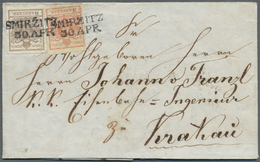 SMIRŽITZ SMIRŽITZ
30 APR 30 APR
Sr
Wohlgeboren Herrn
Herrn Johann v Franzl
K. K. Eisenbahn-Ingenieur
Zu Krakau